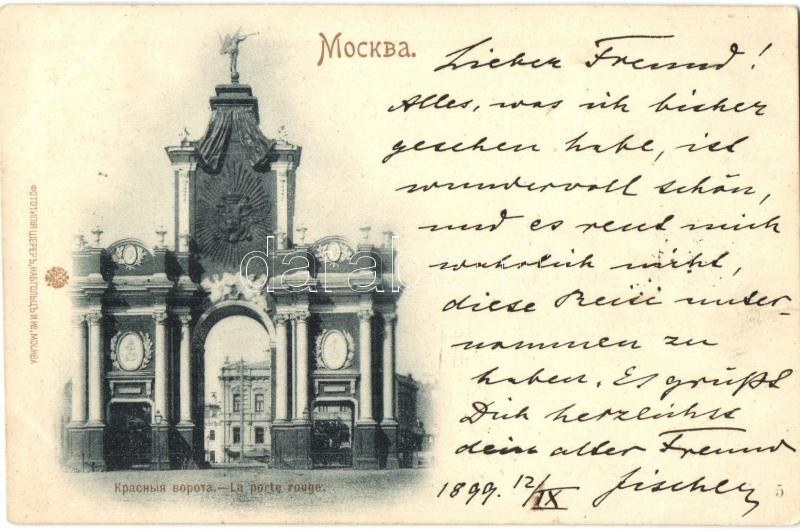 Москва.
Lieber Freund!
Alles, was ich bisher
gesehen habe, ist
wundervoll schön,
und es reut mich
wahrlich nicht,
diese Reise unter-
nommen zu
haben. Es grüßt
Dich herzlichst
dein alter Freund
1899. 12/IX Fischer
Красныя ворота.—La porte rouge.
5
ФОТОТИПІЯ ШЕРЕРЪ, НАБГОЛЬЦЪ И Ко, МОСКВА
darabanth